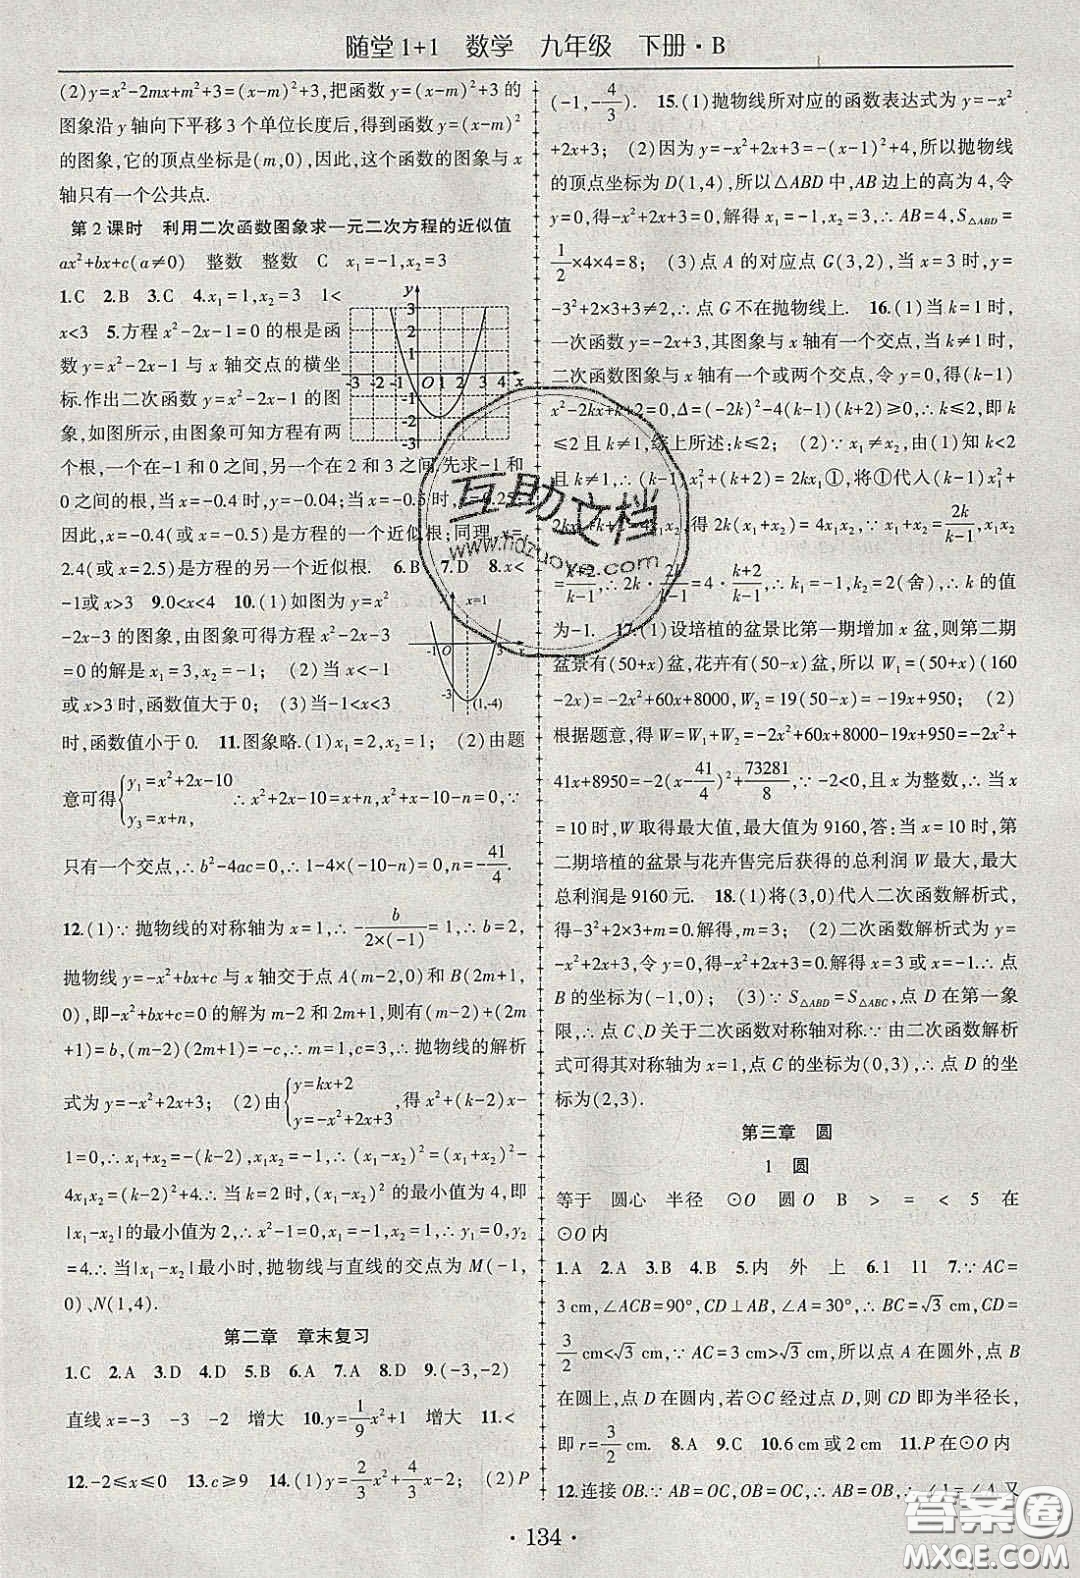 随堂1+1　数学　九年级　下册·B
(2)y=x²-2mx+m²+3=(x-m)²+3,把函数y=(x-m)²+3的
图象沿y轴向下平移3个单位长度后,得到函数y=(x-m)²
的图象,它的顶点坐标是(m,0),因此,这个函数的图象与x
轴只有一个公共点.
第2课时　利用二次函数图象求一元二次方程的近似值
ax²+bx+c(a≠0)　整数　整数　C　x₁=-1,x₂=3
1.C　2.B　3.C　4.x₁=1,x₂=3　1<
x<3　5.方程x²-2x-1=0的根是函
数y=x²-2x-1与x轴交点的横坐
标.作出二次函数y=x²-2x-1的图
象,如图所示,由图象可知方程有两
个根,一个在-1和0之间,另一个在2和3之间.先求-1和
0之间的根,当x=-0.4时,y=-0.04;当x=-0.5时,y=0.25;
因此,x=-0.4(或x=-0.5)是方程的一个近似根;同理,x=
2.4(或x=2.5)是方程的另一个近似根.　6.B　7.D　8.x<
-1或x>3　9.0<x<4　10.(1)如图为y=x²
-2x-3的图象,由图象可得方程x²-2x-3
=0的解是x₁=3,x₂=-1；(2)当x<-1
或x>3时,函数值大于0；(3)当-1<x<3
时,函数值小于0.　11.图象略.(1)x₁=2,x₂=1；(2)由题
意可得{y₁=x²+2x-10 y₃=x+n, ∴x²+2x-10=x+n,x²+x-10-n=0,∵
只有一个交点,∴b²-4ac=0,∴1-4×(-10-n)=0,n=-41/4.
12.(1)∵抛物线的对称轴为x=1,∴-b/(2×(-1))=1,∴b=2,
抛物线y=-x²+bx+c与x轴交于点A(m-2,0)和B(2m+1,
0),即-x²+bx+c=0的解为m-2和2m+1,则有(m-2)+(2m
+1)=b,(m-2)(2m+1)=-c,∴m=1,c=3,∴抛物线的解析
式为y=-x²+2x+3；(2)由{y=kx+2 y=-x²+2x+3,得x²+(k-2)x-
1=0,∴x₁+x₂=-(k-2),x₁x₂=-1,∴(x₁-x₂)²=(x₁+x₂)²-
4x₁x₂=(k-2)²+4.∴当k=2时,(x₁-x₂)²的最小值为4,即
|x₁-x₂|的最小值为2,∴x²-1=0,x₁=-1,x₂=1,∴y₁=0,y₂
=4.∴当|x₁-x₂|最小时,抛物线与直线的交点为M(-1,
0)、N(1,4).
第二章　章末复习
1.C　2.A　3.D　4.D　5.B　6.A　7.A　8.D　9.(-3,-2)
直线x=-3　-3　-2　增大　10.y=1/9x²+1　增大　11.<
12.-2≤x≤0　13.c≥9　14.(1)y=2/3x²+4/3x-2；(2)P
(-1,-4/3).　15.(1)抛物线所对应的函数表达式为y=-x²
+2x+3；(2)因为y=-x²+2x+3=-(x-1)²+4,所以抛物线
的顶点坐标为D(1,4),所以△ABD中,AB边上的高为4,令
y=0,得-x²+2x+3=0,解得x₁=-1,x₂=3,∴AB=4,S△ABD=
1/2×4×4=8；(3)点A的对应点G(3,2),当x=3时,y=
-3²+2×3+3=0≠2,∴点G不在抛物线上.　16.(1)当k=1时,
一次函数y=-2x+3,其图象与x轴有一个交点,当k≠1时,
二次函数图象与x轴有一个或两个交点,令y=0得(k-1)
x²-2kx+k+2=0,Δ=(-2k)²-4(k-1)(k+2)≥0,∴k≤2,即k
≤2且k≠1,综上所述:k≤2；(2)∵x₁≠x₂,由(1)知k<2
且k≠1,∴(k-1)x₁²+(k+2)=2kx₁①,将①代入(k-1)x₁²+
2kx₂+k+2=4x₁x₂,得2k(x₁+x₂)=4x₁x₂,∵x₁+x₂=2k/(k-1),x₁x₂
=(k+2)/(k-1),∴2k·2k/(k-1)=4·(k+2)/(k-1),∴k₁=-1,k₂=2(舍),∴k的值
为-1.　17.(1)设培植的盆景比第一期增加x盆,则第二期
盆景有(50+x)盆,花卉有(50-x)盆,所以W₁=(50+x)(160
-2x)=-2x²+60x+8000,W₂=19(50-x)=-19x+950；(2)
根据题意,得W=W₁+W₂=-2x²+60x+8000-19x+950=-2x²+
41x+8950=-2(x-41/4)²+73281/8,∵-2<0,且x为整数,∴当x
=10时,W取得最大值,最大值为9160,答:当x=10时,第
二期培植的盆景与花卉售完后获得的总利润W最大,最大
总利润是9160元.　18.(1)将(3,0)代入二次函数解析式,
得-3²+2×3+m=0.解得,m=3；(2)二次函数解析式为y=
-x²+2x+3,令y=0,得-x²+2x+3=0,解得x=3或x=-1.∴点
B的坐标为(-1,0)；(3)∵S△ABD=S△ABC,点D在第一象
限,∴点C、D关于二次函数对称轴对称.∵由二次函数解析
式可得其对称轴为x=1,点C的坐标为(0,3),∴点D的坐
标为(2,3).
第三章　圆
1　圆
等于　圆心　半径　⊙O　圆O　B　>　=　<　5　在
⊙O内
1.A　2.A　3.B　4.B　5.内　外　上　6.1　11　7.∵AC=
3 cm,∠ACB=90°,CD⊥AB,∠A=30°,∴BC=√3 cm,CD=
3/2 cm<√3 cm,∵AC=3 cm>√3 cm,所以点A在圆外,点B
在圆上,点D在圆内,若⊙C经过点D,则CD即为半径长,
即r=3/2 cm.　8.A　9.C　10.6 cm或2 cm　11.P在⊙O内
12.连接OB.∵AB=OC,OB=OC,∴AB=OB,∴∠1=∠A又
y
3
2
1
-3 -2 -1 O 1 2 3 4 x
-1
-2
-3
y
x=1
-1 O 3 x
-3
(1,-4)
互助文档
www.hdzuoye.com
· 134 ·
答案圈
MXQE.COM